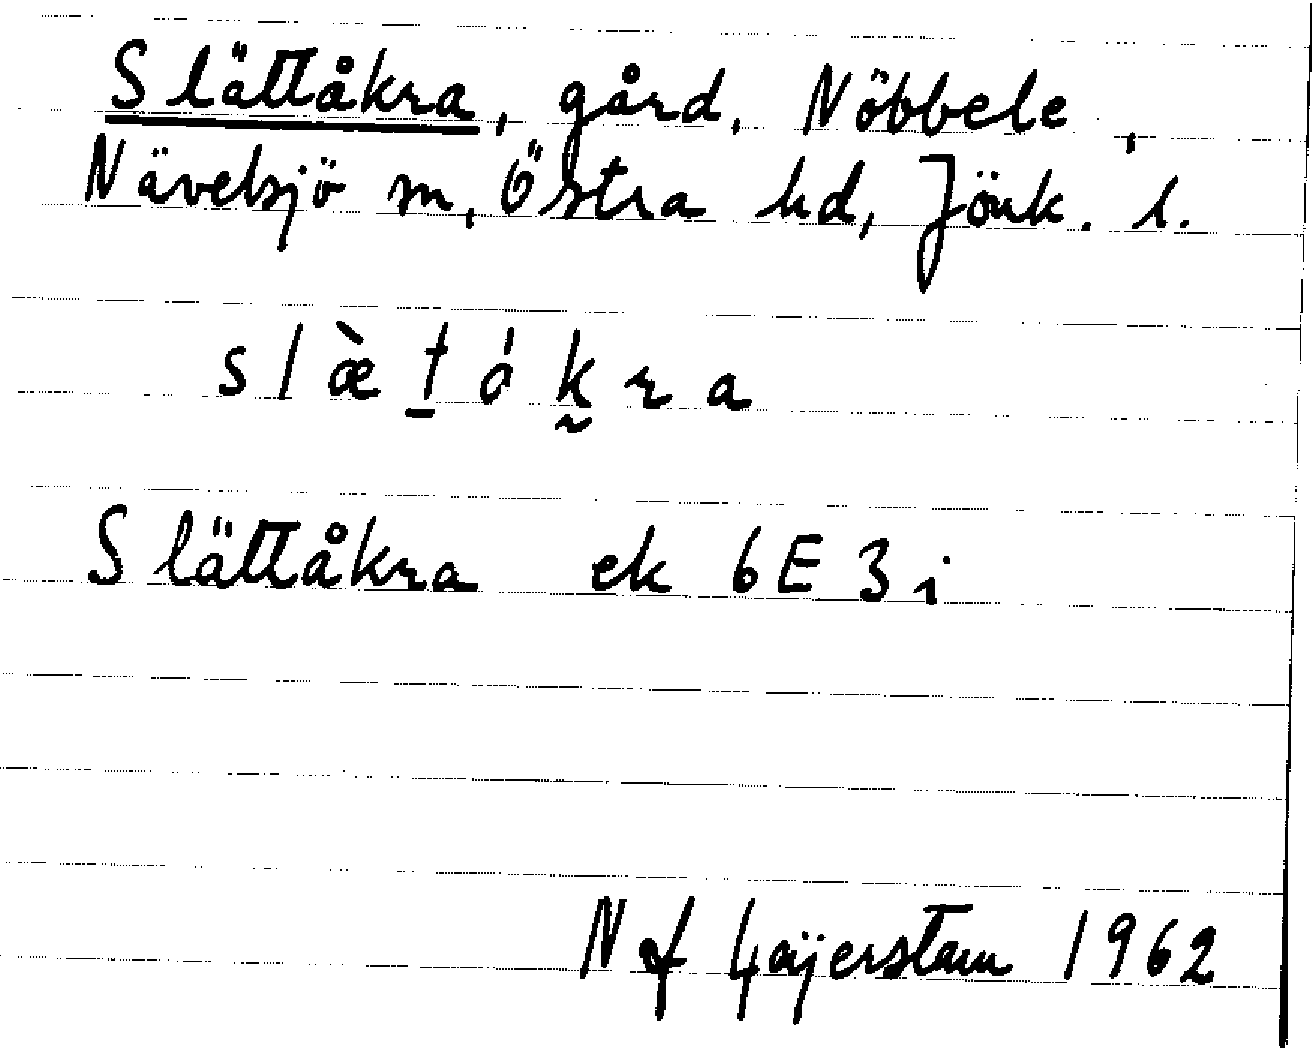 Slättåkra, gård, Nöbbele,
Nävelsjö sn, Östra hd, Jönk. l.
slæ̀t̠ǻk̰ra
Slättåkra ek 6E3i
N af Geijerstam 1962